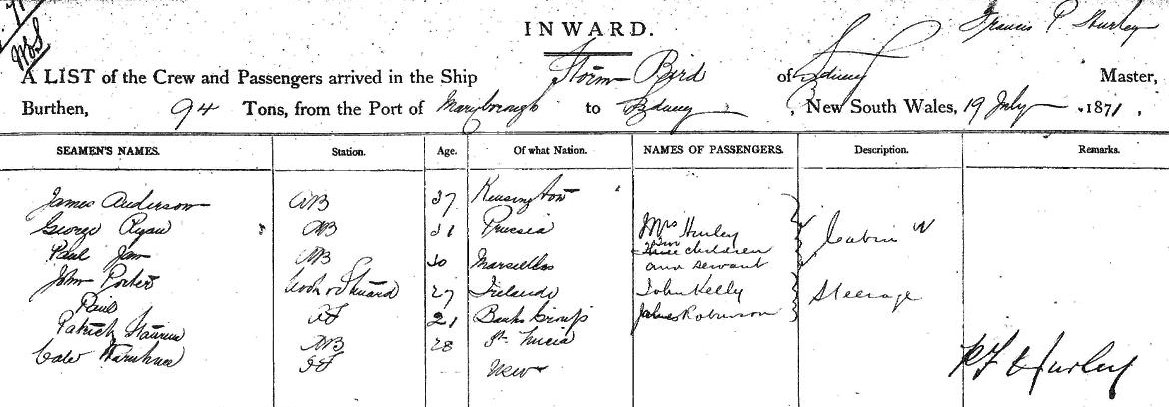 INWARD.
Francis P Hurley
A LIST of the Crew and Passengers arrived in the Ship Storm Bird of Sydney Master,
Burthen, 94 Tons, from the Port of Maryborough to Sydney, New South Wales, 19 July 1871.
SEAMEN'S NAMES. Station. Age. Of what Nation. NAMES OF PASSENGERS. Description. Remarks.
James Anderson AB 37 Kensington
George Ryan AB 31 Prussia Mrs Hurley Cabin
Paul AB 30 Marseilles children
and servant
John Porter Cook & 27 Ireland John Kelly Steerage
Paul 21 Banks Group James Robinson
Patrick AB 28 St. Lucia
New
Hurley